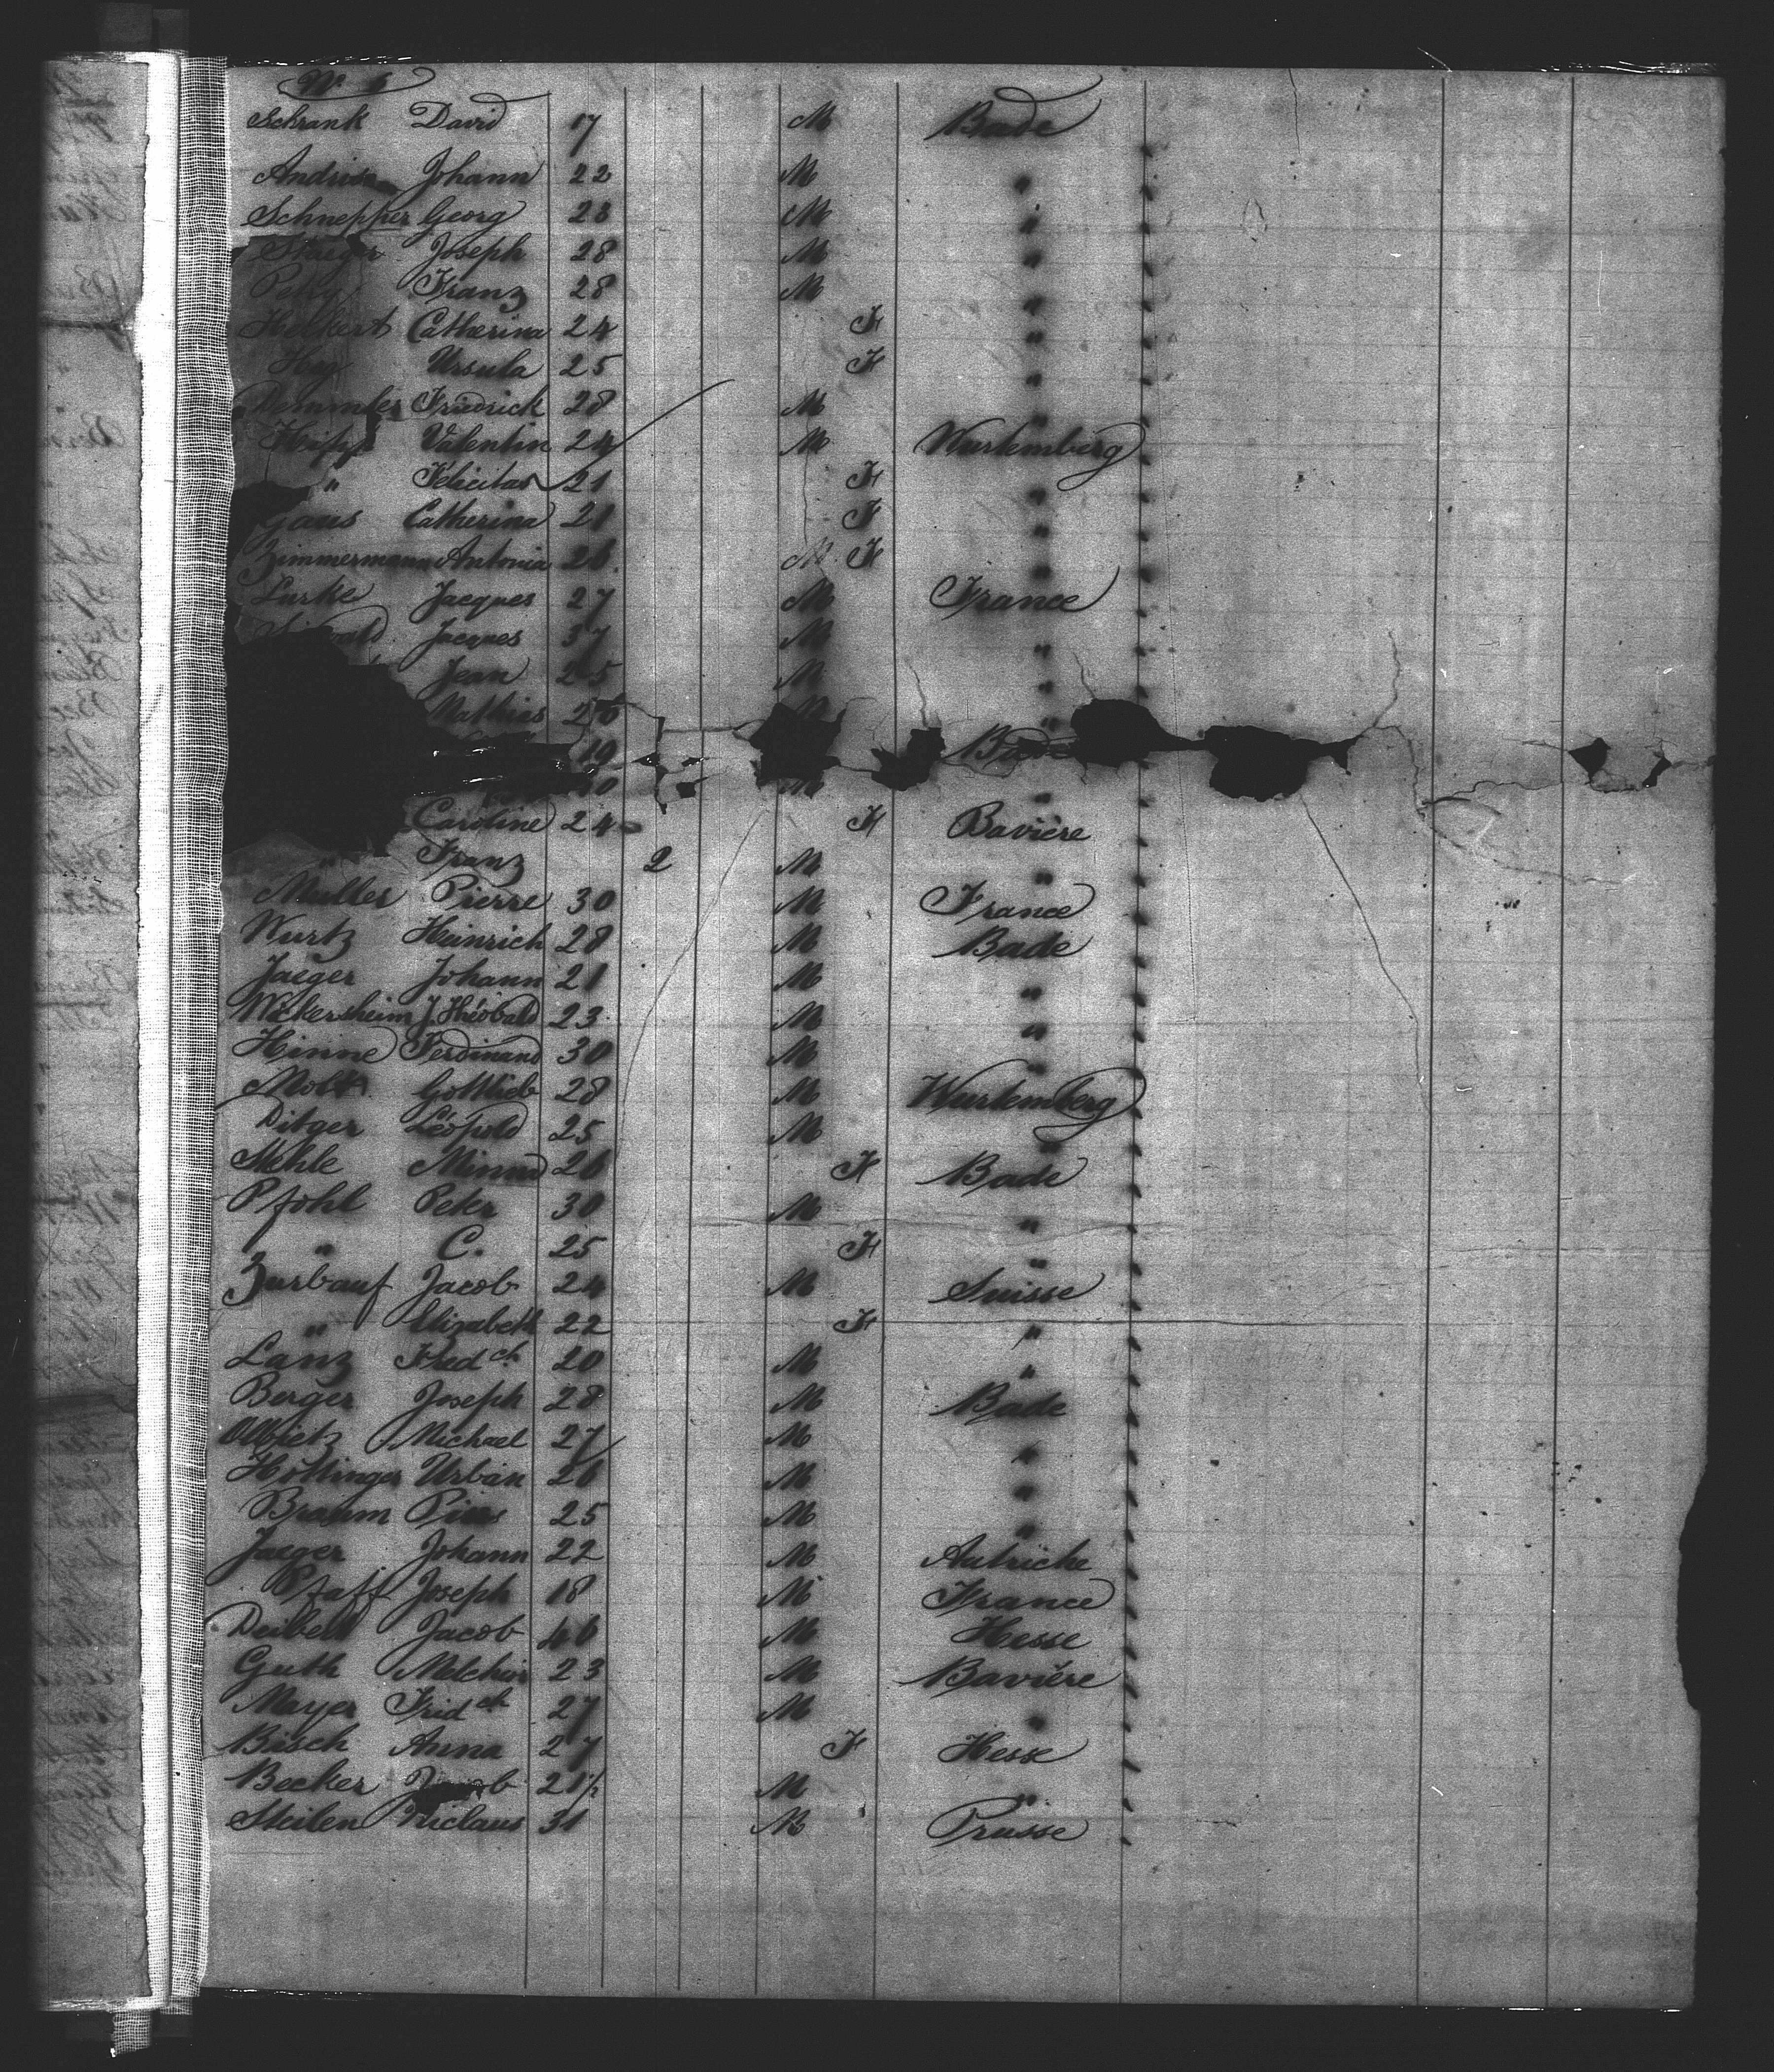 Nº 6
Schrank David 17 M Bade
Johann 22 M "
Schnepper Georg 28 M "
Staeger Joseph 28 M "
Franz 28 M "
Catherina 24 F "
Hug Ursula 25 F "
Demmler Friedrick 28 M "
Valentin 24 M Wurtemberg
" Felicitas 21 F "
Gaus Catherina 21 F "
Zimmermann Antonia 26 M F "
Lurke Jacques 27 M France
Jacques 37 M "
Jean 25 M "
Mathias 26 M "
19
M "
Caroline 24 F Bavière
" Franz 2 M "
Muller Pierre 30 M France
Wurtz Heinrich 28 M Bade
Jaeger Johann 21 M "
Wickersheim J. Théobald 23 M "
Hinne Ferdinand 30 M "
Gottlieb 28 M Wurtemberg
Ditger Léopold 25 M "
Mehle Minna 26 F Bade
Pfohl Peter 30 M "
" C. 25 F "
Zurbauf Jacob 24 M Suisse
" Elizabeth 22 F "
Lanz Fredch 20 M "
Berger Joseph 28 M Bade
Michael 27 M "
Hottinger Urban 26 M "
Braum 25 M "
Jaeger Johann 22 M Autriche
Pfaff Joseph 18 M France
Deibert Jacob 46 M Hesse
Guth Melchior 23 M Bavière
Mayer Fridch 27 M "
Bisch Anna 27 F Hesse
Becker Jacob M "
Steilen Niclaus 31 M Prusse